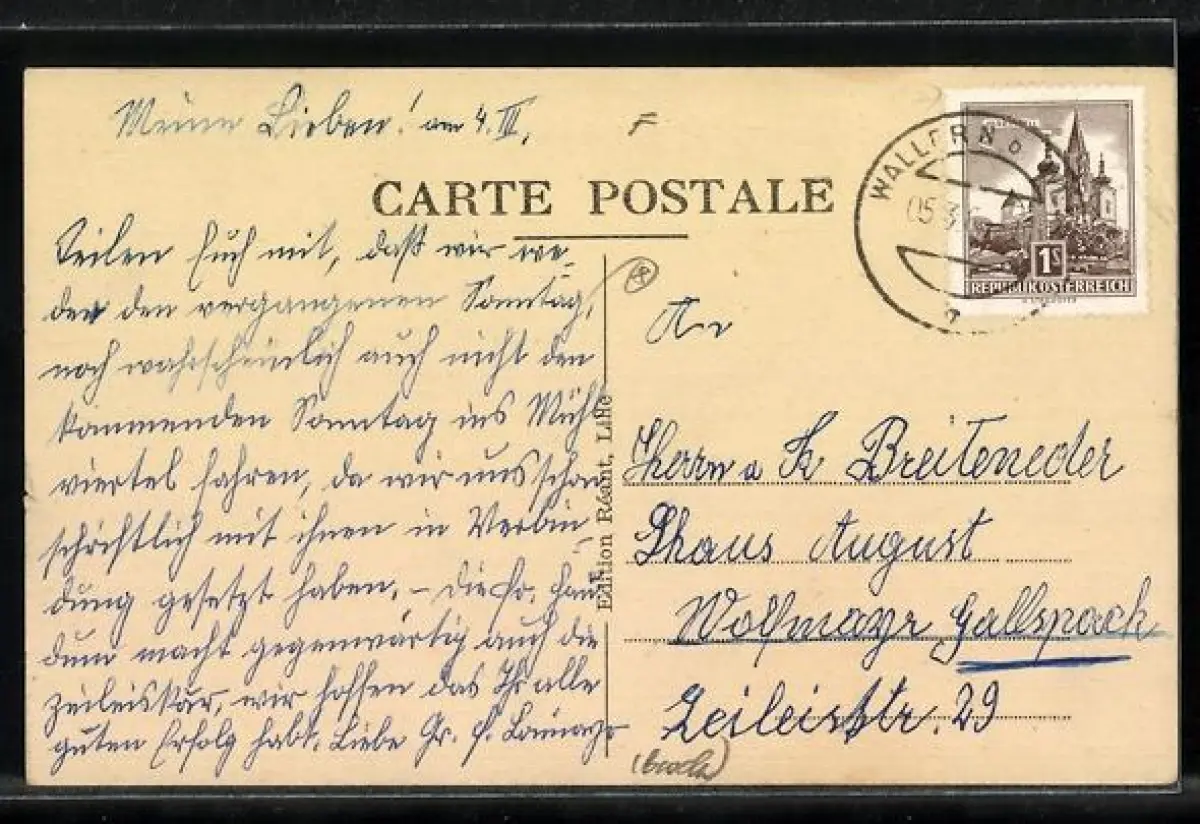 Meine Lieben! am 4. III.
CARTE POSTALE
Teilen Euch mit, daß wir we-
der den vergangenen Sonntag,
noch wahrscheinlich auch nicht den
kommenden Sonntag ins Mühl
viertel fahren, da wir uns schon
schriftlich mit ihnen in Verbin-
dung gesetzt haben. – Die Fr.
macht gegenwärtig auch die
Zeileiskur, wir hoffen das Ihr alle
guten Erfolg habt. Liebe Gr.
Edition Réant, Lille
WALLERN
05.3
1S
REPUBLIK ÖSTERREICH
An
Herrn u Fr Breiteneder
Haus August
Wolfmayr Gallspach
Zeileisstr. 29